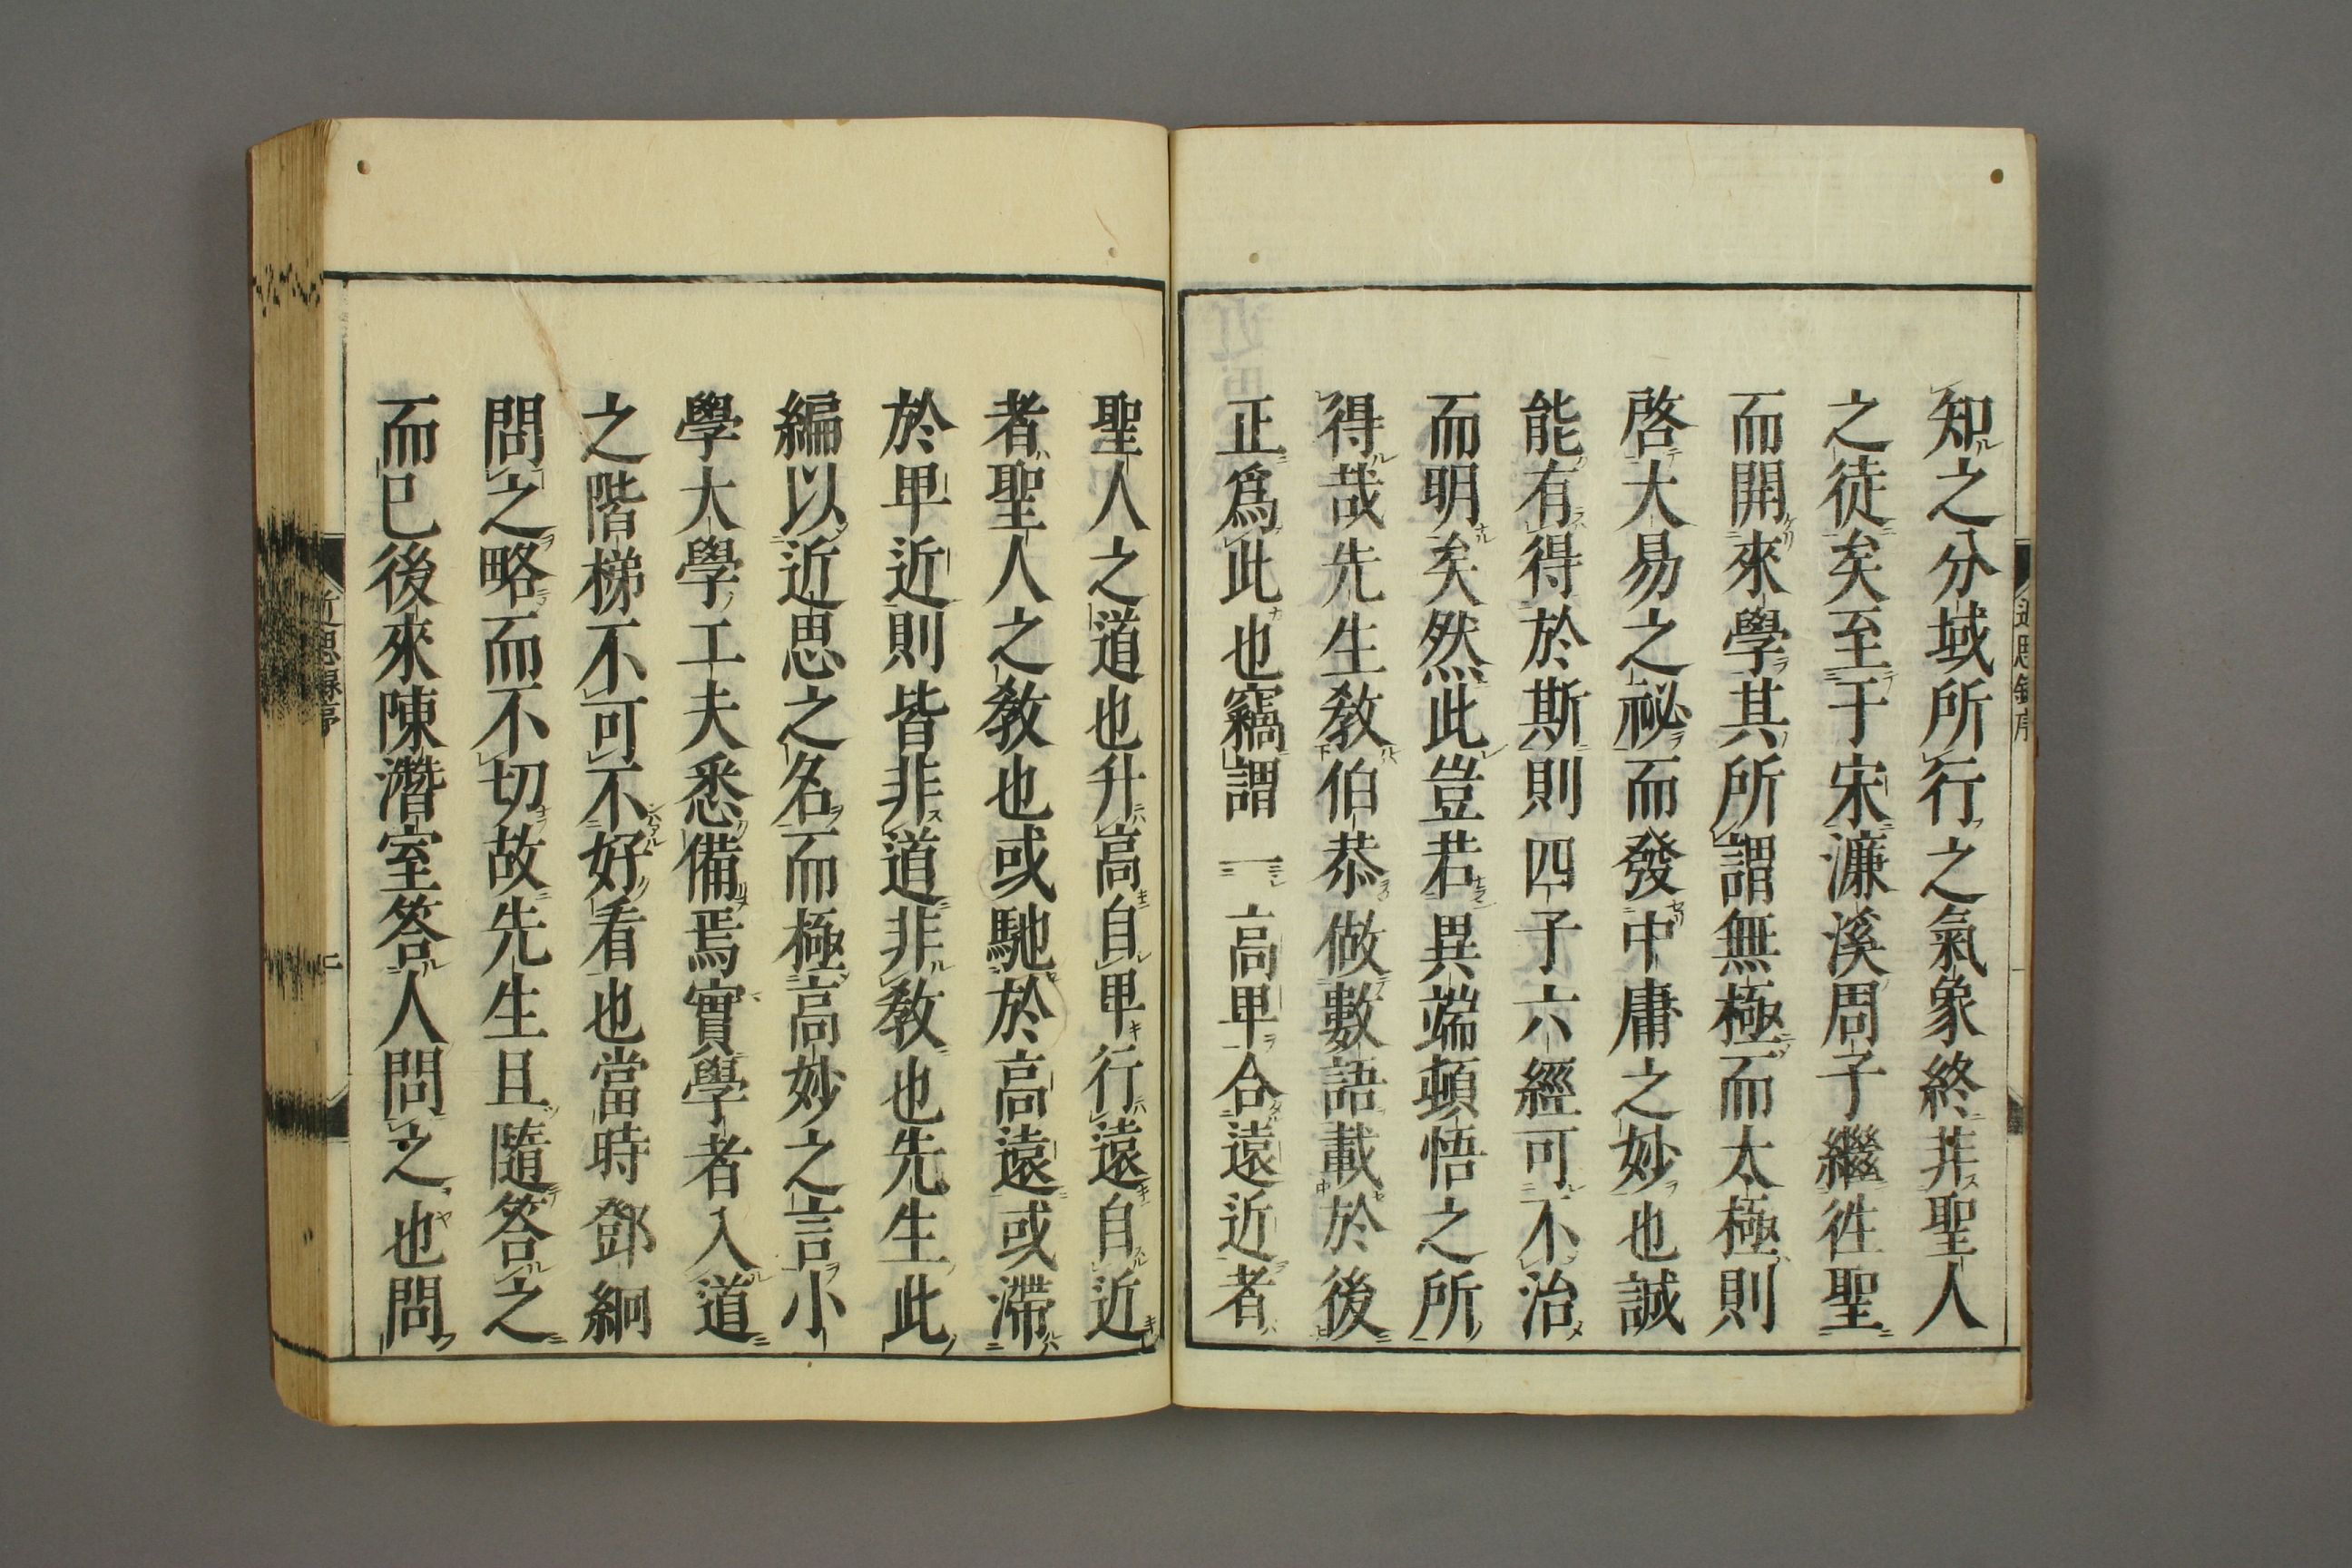 知之分域所行之氣象終非聖人
之徒矣至于宋濂溪周子繼徃聖
而開來學其所謂無極而太極則
啓大易之祕而發中庸之妙也誠
能有得於斯則四子六經可不治
而明矣然此豈若異端頓悟之所
得哉先生教伯恭做數語載於後
正爲此也竊謂高卑合遠近者
聖人之道也升高自卑行遠自近
者聖人之教也或馳於高遠或滯
於卑近則皆非道非教也先生此
編以近思之名而極高妙之言小
學大學工夫悉備焉實學者入道
之階梯不可不好看也當時鄧絅
問之略而不切故先生且隨答之
而已後來陳潛室答人問之也問
近思錄序
近思錄序
二